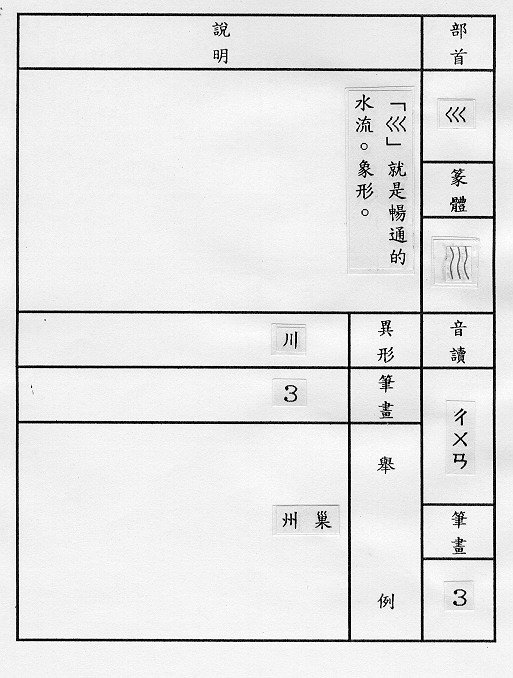 部首
巛
篆體
音讀
ㄔㄨㄢ
筆畫
3
說明
「巛」就是暢通的
水流。象形。
異形
川
筆畫
3
舉例
巢
州